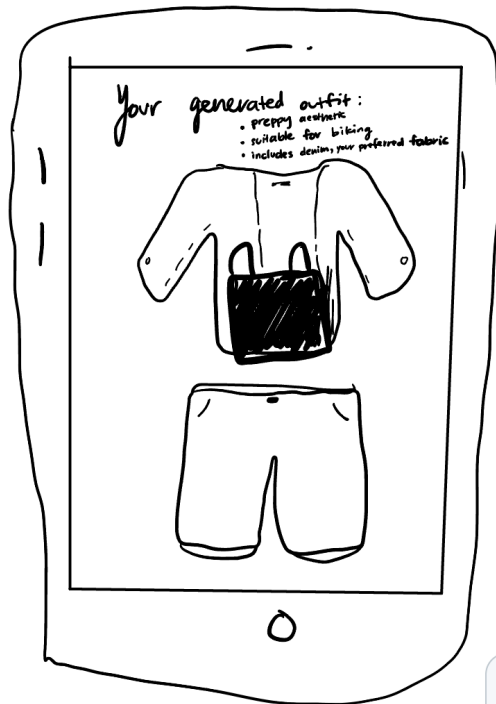 Your generated outfit:
• preppy aesthetic
• suitable for biking
• includes denim, your preferred fabric